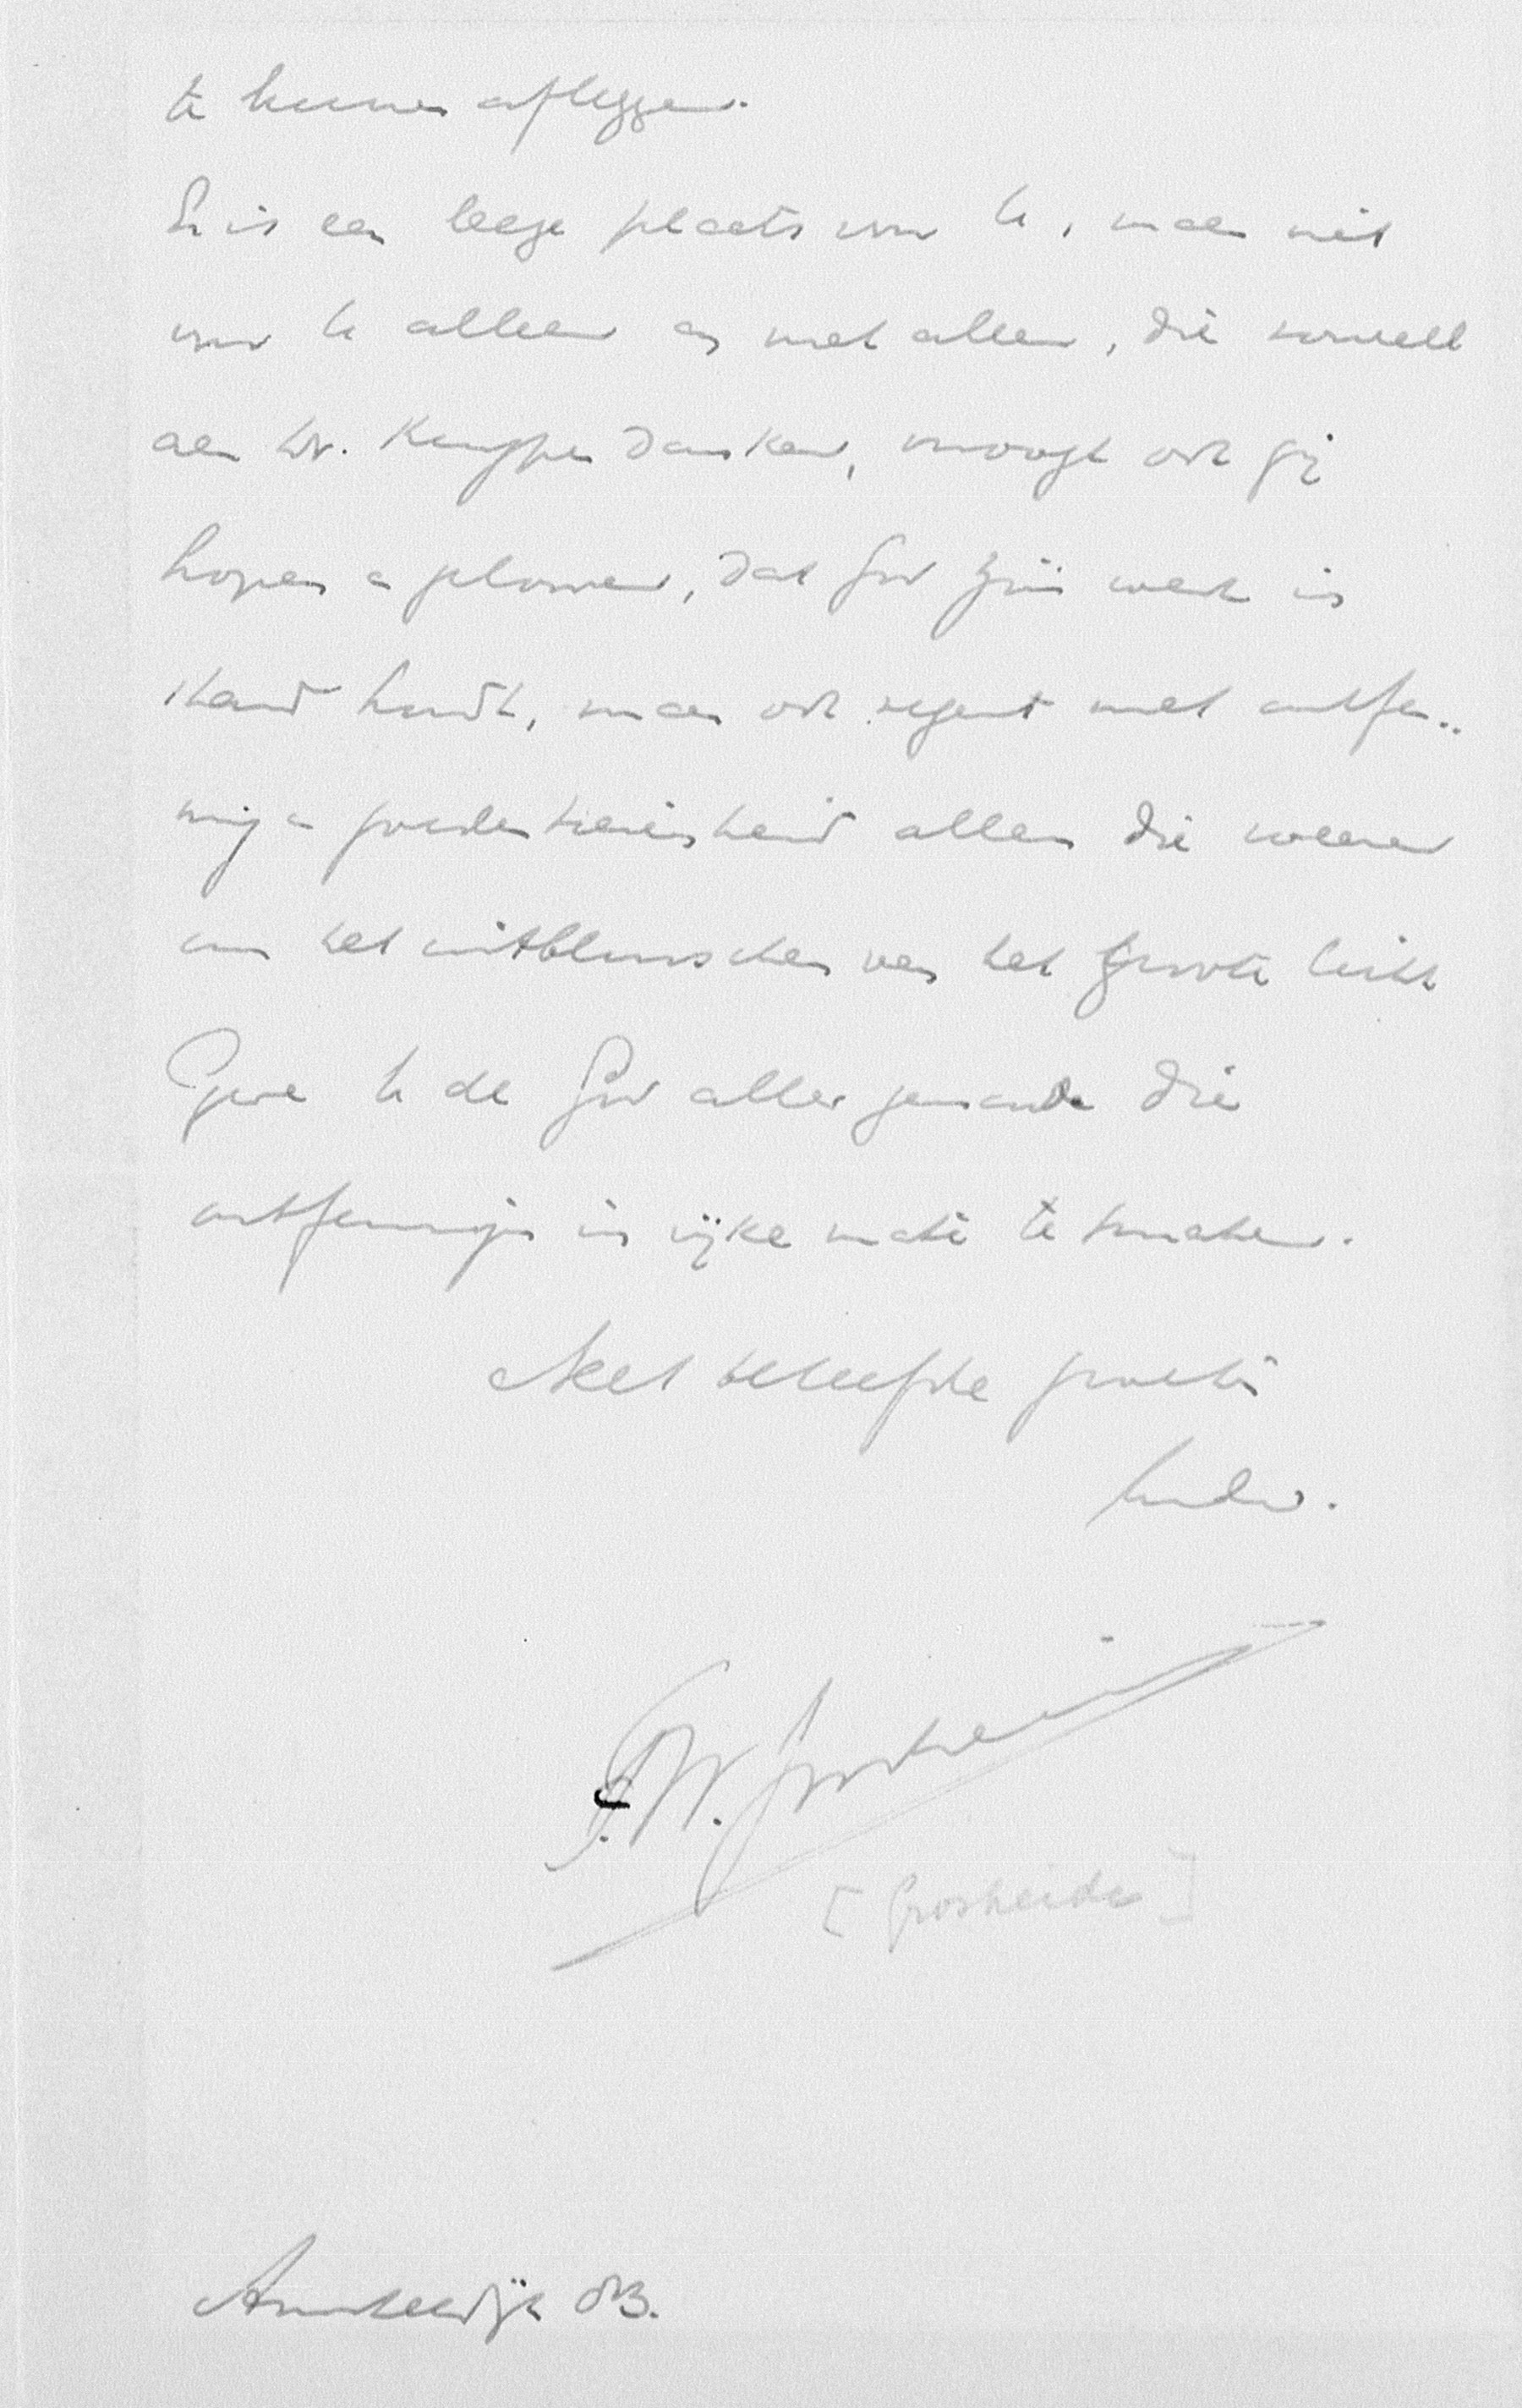 te kunnen afleggen.
Er is een leege plaats voor U, maar niet
voor U alleen en met allen, die zooveel
aan Dr. Kuyper danken, moogt ook gij
hopen en gelooven, dat God Zijn werk in
stand houdt, maar ook zegent met ontfer-
ming en goedertierenheid allen die weenen
om het uitblusschen van het groote licht
Geve U de God aller genade die
ontferming in rijke mate te smaken.
Met beleefde groete
Uwdw.
F.W. Grosheide
[Grosheide]
Amsteldijk 83.